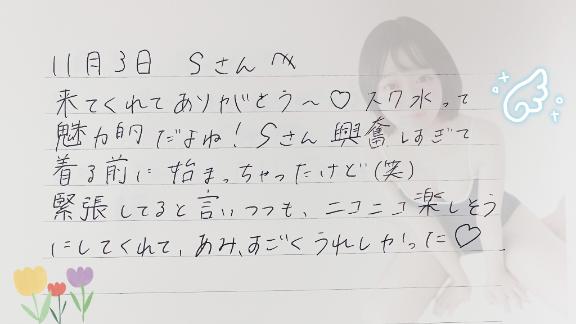 11月3日 Sさんへ
来てくれてありがとう〜♡ スク水って
魅力的だよね！Sさん興奮しすぎて
着る前に始まっちゃったけど(笑)
緊張してると言いつつも、ニコニコ楽しそう
にしてくれて、あみ、すごくうれしかった♡